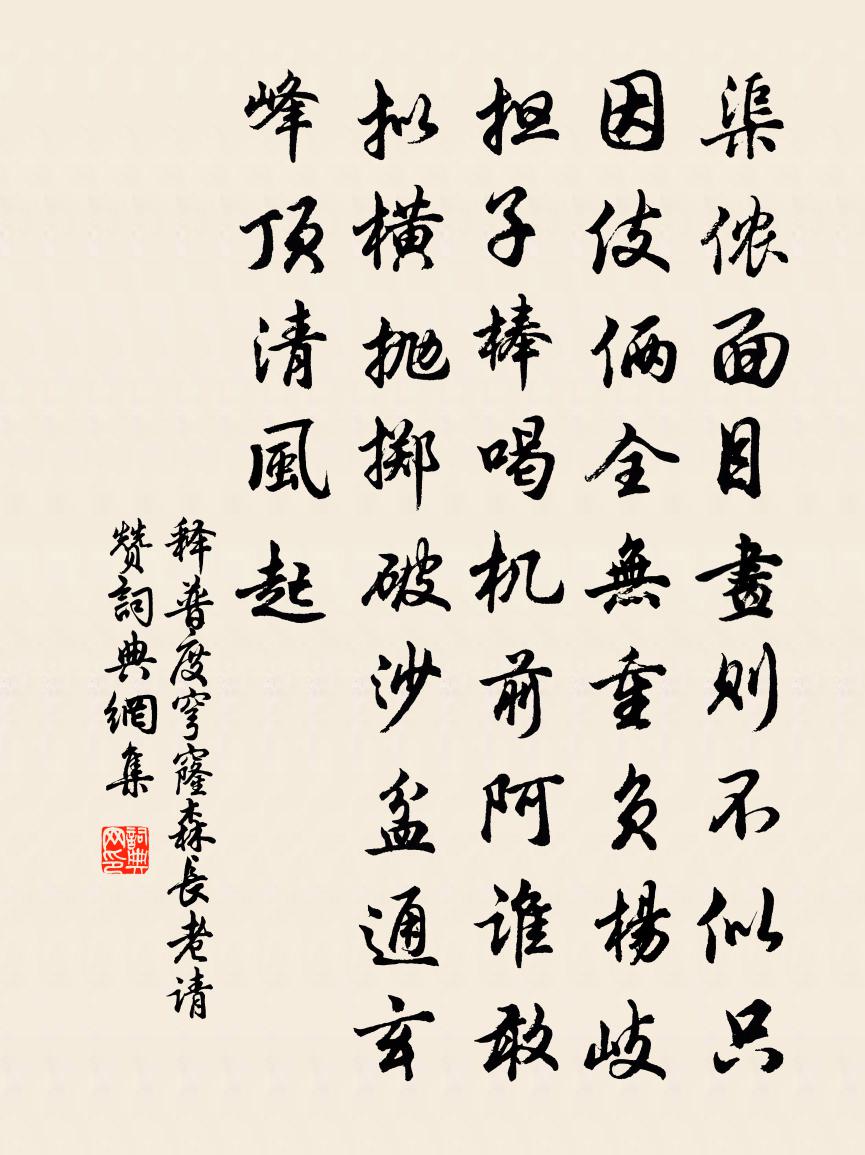 渠侬面目畫则不似只
因伎俩全無重负楊岐
担子棒喝机前阿谁敢
拟横抛掷破沙盆通玄
峰顶清風起
释普度穹窿森長老请
赞詞典網集
詞典网印